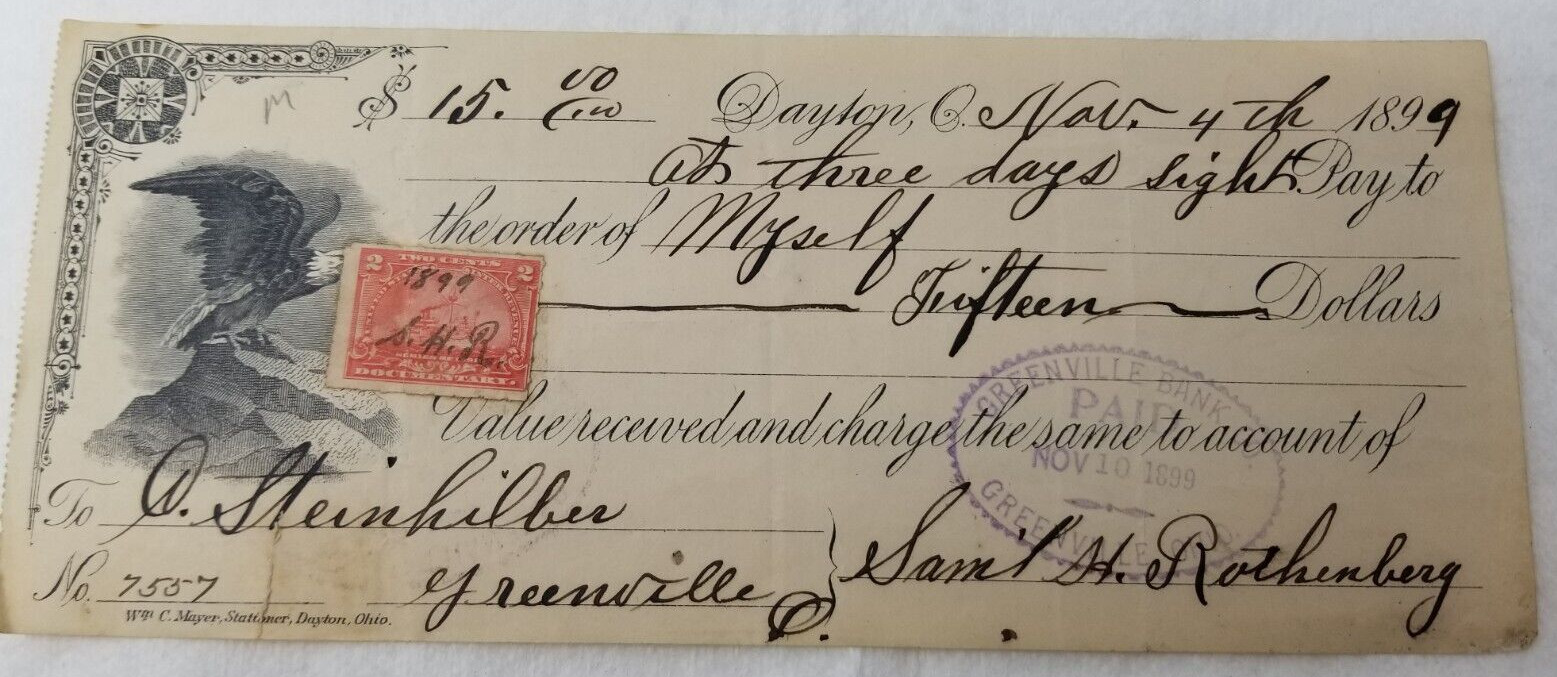 M
$ 15. 00/100 Dayton, O. Nov. 4th 1899
At three days sight Pay to
the order of Myself
Fifteen Dollars
2 TWO CENTS 2
1899
S. H. R.
DOCUMENTARY.
GREENVILLE BANK
PAID
NOV 10 1899
GREENVILLE
Value received and charge the same to account of
To O. Steinhilber
No. 7557 Greenville O.
Sam'l H. Rothenberg
Wm C. Mayer, Stationer, Dayton, Ohio.